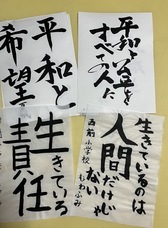 平和な世を
すべての人に
平和と
希望
生きている
責任
生きているのは
人間だけじゃ
ない
西前小学校